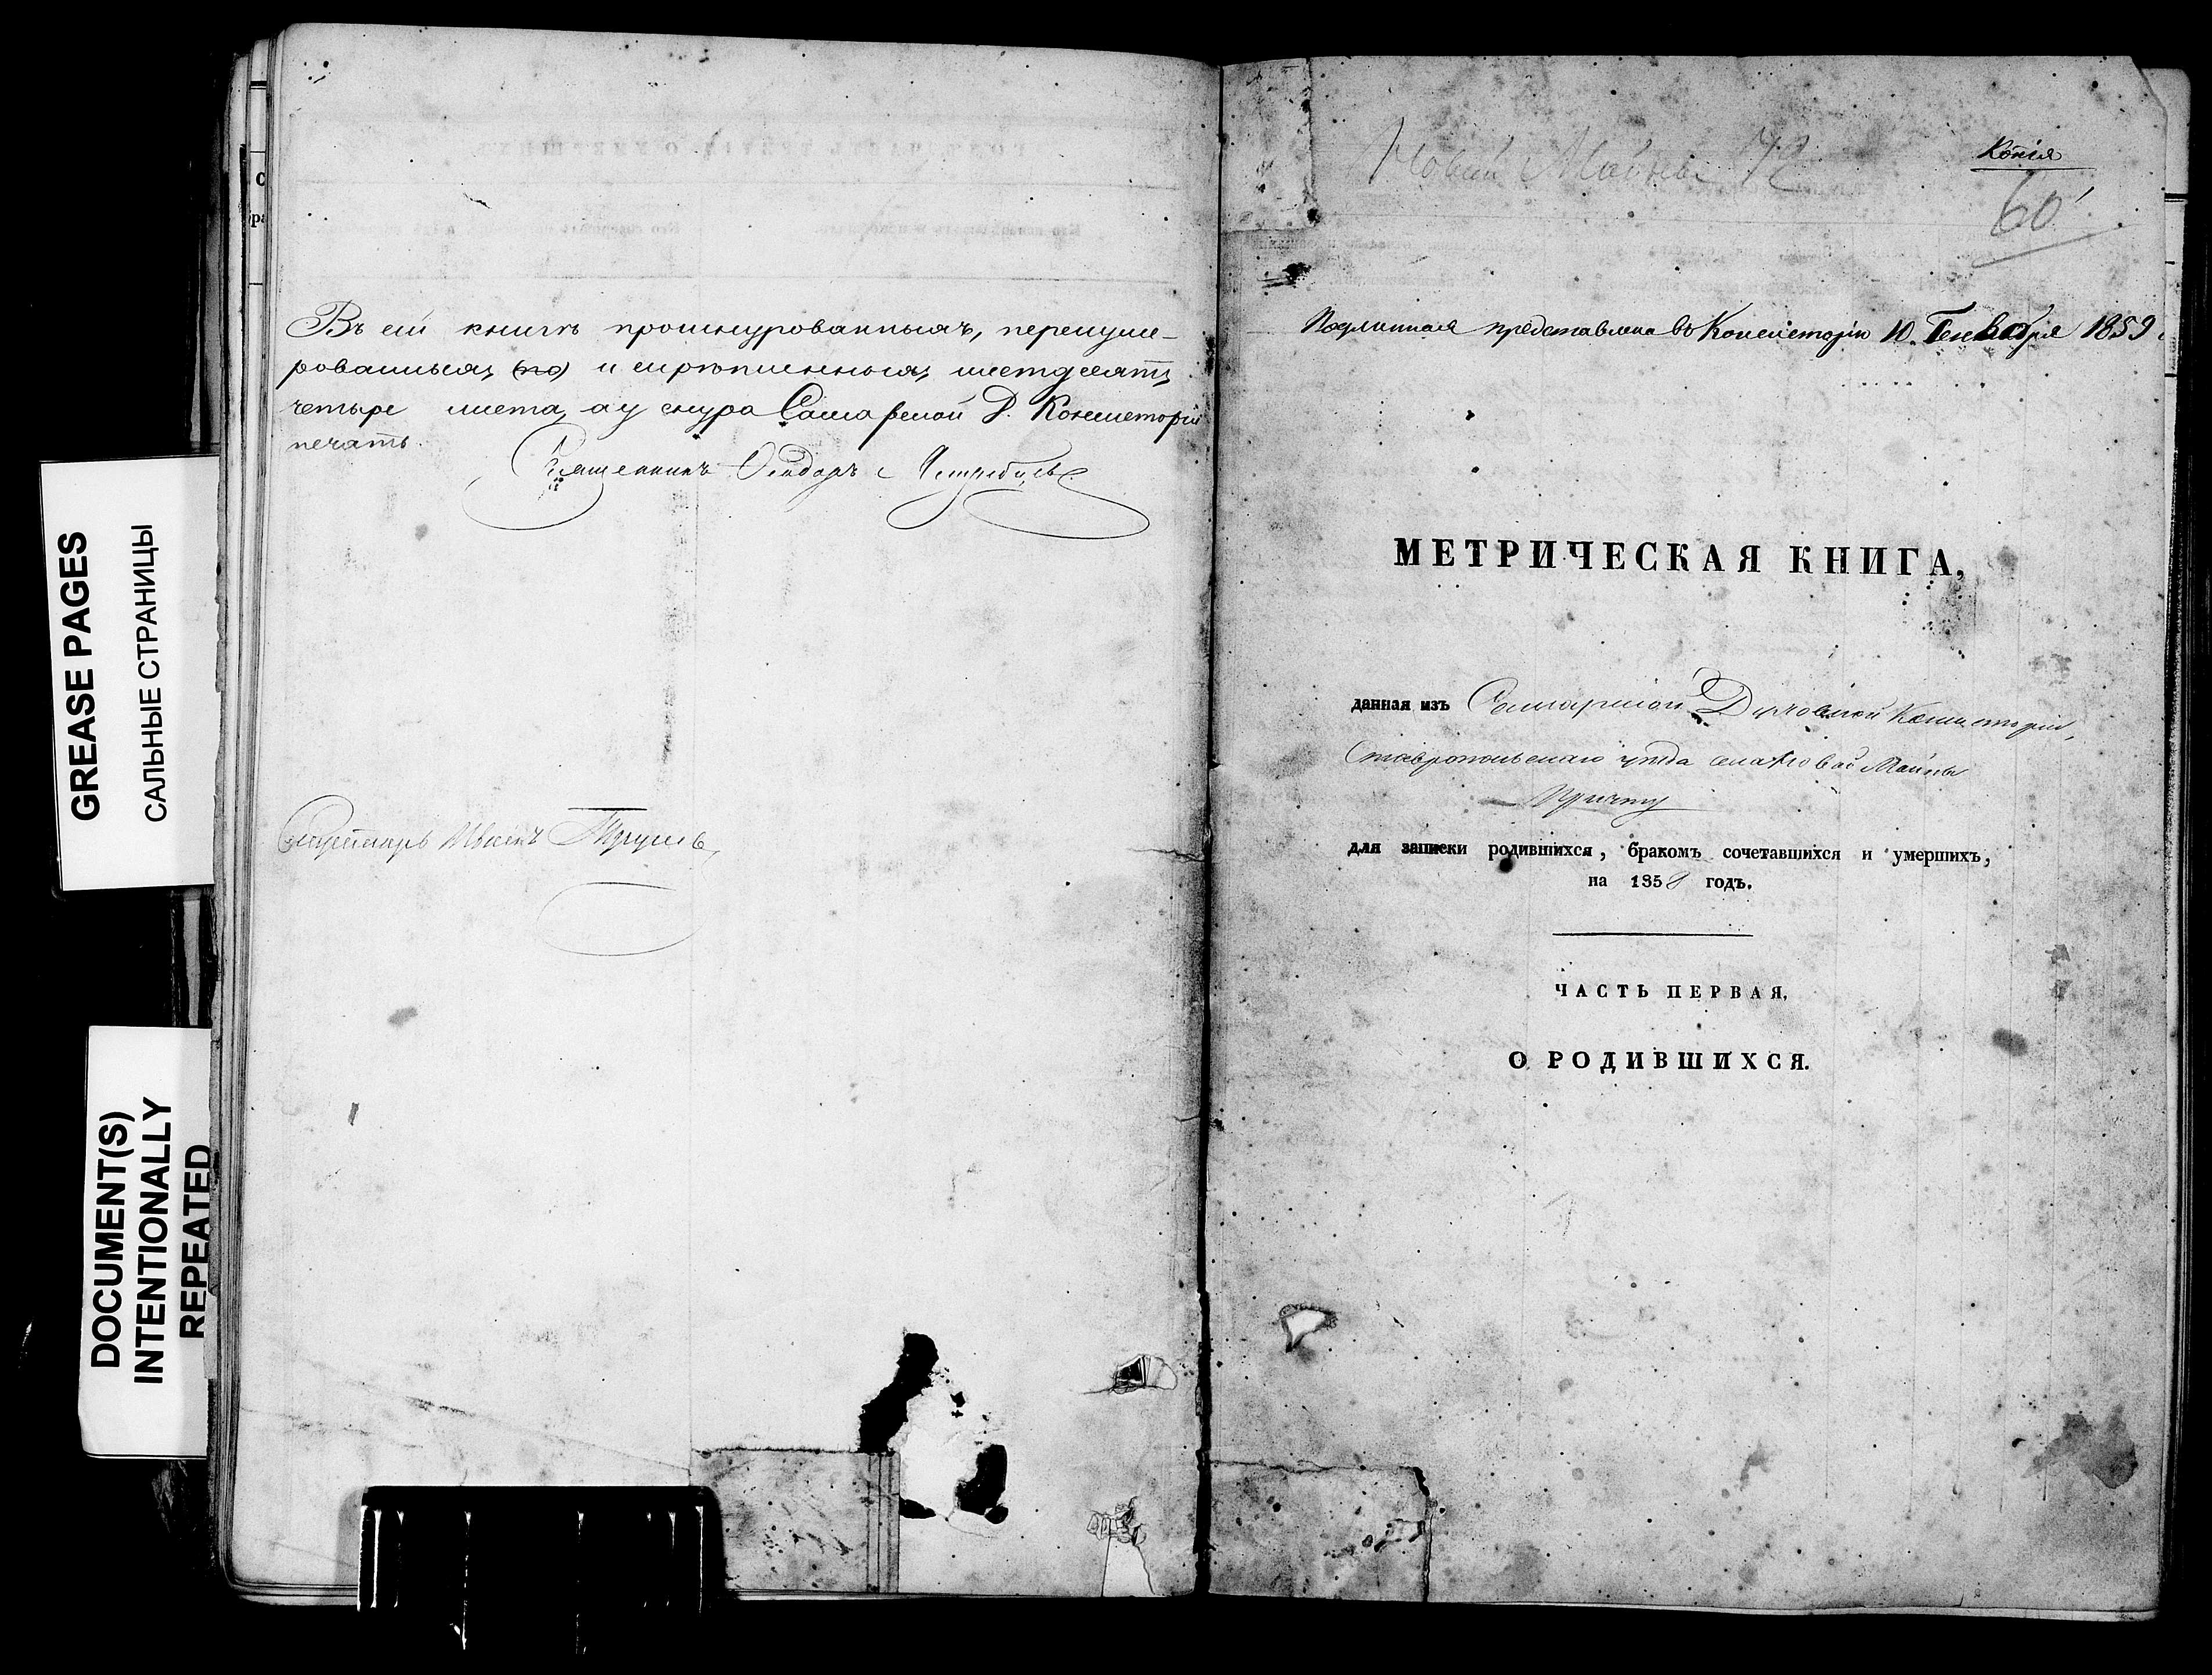 GREASE PAGES
САЛЬНЫЕ СТРАНИЦЫ
DOCUMENT(S)
INTENTIONALLY
REPEATED
Въ сей книгѣ прошнурованныхъ, перенуме-
рованныхъ (по) и скрѣпленныхъ шестдесятъ
четыре листа, а у снура Самарской Д. Консисторіи
печать.
Священникъ Ѳеодоръ Ястребовъ
Секретарь Иванъ
Новой Майны 72
Копія
60
Подлинная представлена въ Консисторію 10. Генваря 1859
МЕТРИЧЕСКАЯ КНИГА,
данная изъ Самарской Духовной Консисторіи,
Ставропольскаго уѣзда села Новой Майны
Причту
для записки родившихся, бракомъ сочетавшихся и умершихъ,
на 1858 годъ.
ЧАСТЬ ПЕРВАЯ,
О РОДИВШИХСЯ.